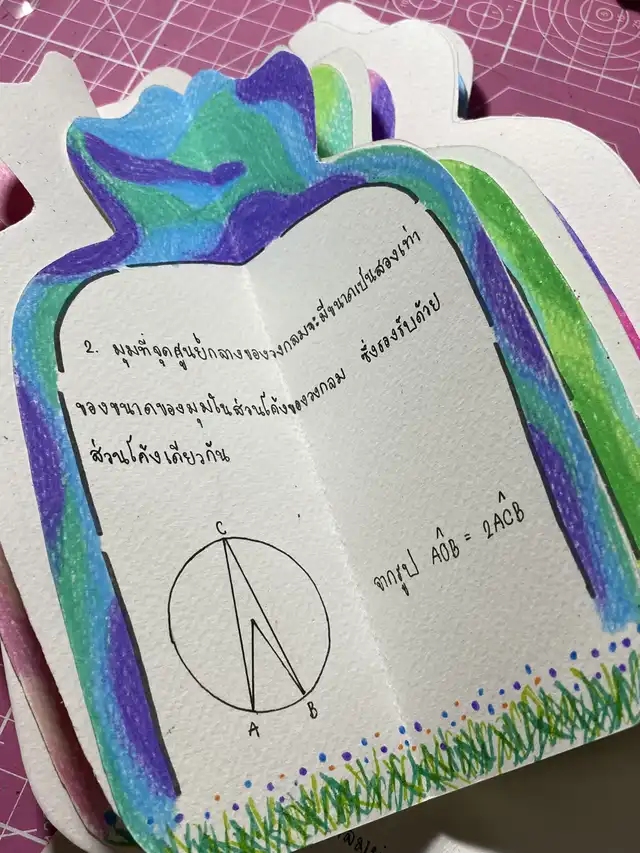 2. มุมที่จุดศูนย์กลางของวงกลมจะมีขนาดเป็นสองเท่า
ของขนาดของมุมในส่วนโค้งของวงกลม ซึ่งรองรับด้วย
ส่วนโค้งเดียวกัน
C
A
B
จากรูป AÔB = 2AĈB